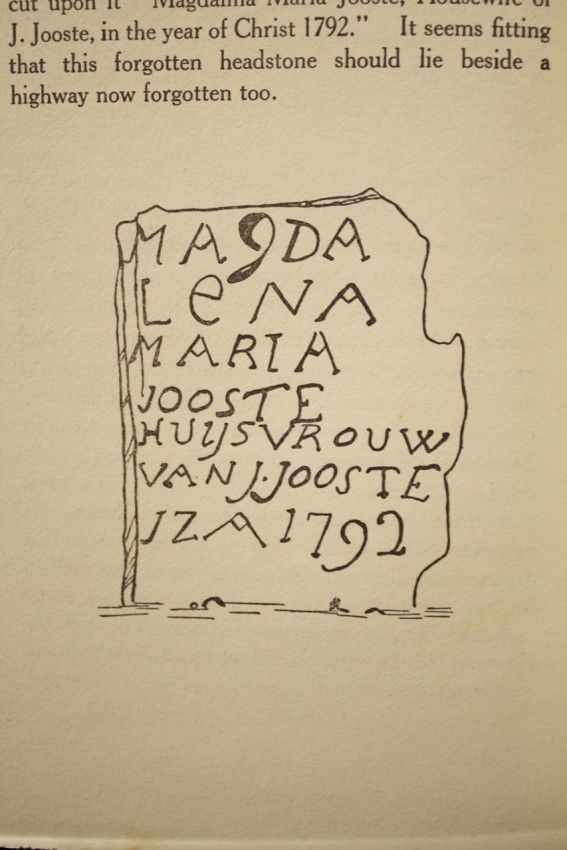 cut upon it "Magdalina Maria Jooste, Housewife of
J. Jooste, in the year of Christ 1792." It seems fitting
that this forgotten headstone should lie beside a
highway now forgotten too.
MAgDA
LeNA
MARIA
JOOSTE
HUIJSVROUW
VAN J·JOOSTE
JZA 1792